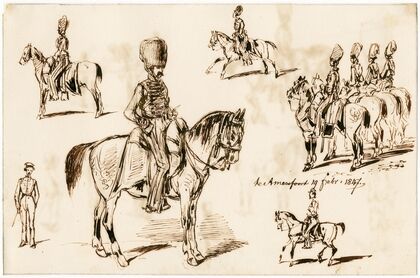 te Amersfoort 19 febr. 1847.